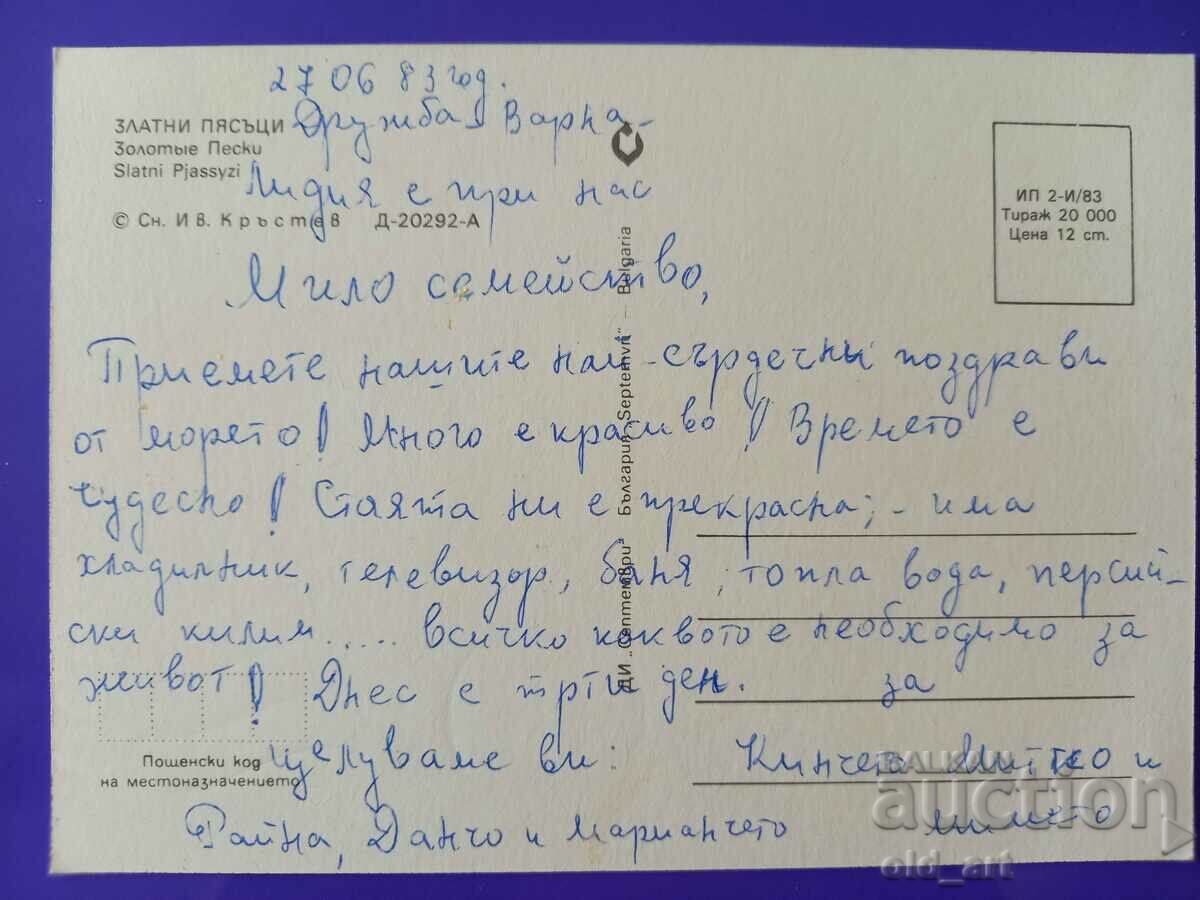 27 06 83 год.
Дружба Варна -
Лидия е при нас
ЗЛАТНИ ПЯСЪЦИ
Золотые Пески
Slatni Pjassyzi
© Сн. Ив. Кръстев Д-20292-А
ИП 2-И/83
Тираж 20 000
Цена 12 ст.
Мило семейство,
Приемете нашите най-сърдечни поздрави
от морето! Много е красиво! Времето е
чудесно! Стаята ни е прекрасна; - има
хладилник, телевизор, баня, топла вода, персий-
ски килим..... всичко каквото е необходимо за
живот! Днес е трти ден. за
Целуваме ви: Кинчета Митко и
Файна, Данчо и Марианчето
ДИ „Септември" България „Septemvri" – Bulgaria
Пощенски код
на местоназначението
BALKAN
auction
old_art